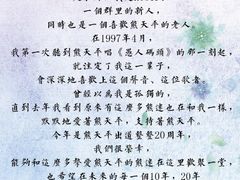 一個群里的新人，
同時也是一個喜歡熊天平的老人，
在1997年4月，
我第一次聽到熊天平唱《愚人碼頭》的那一刻起，
就注定了我這一輩子，
會深深地喜歡上這個聲音、這位歌者
曾經以為我是孤獨的，
直到去年我看到原來有這麼多熊迷也在和我一樣，
默默地愛著熊天平，支持著熊天平。
今年是熊天平出道整整20周年，
我們很榮幸，
能夠和這麼多摯愛熊天平的熊迷在這里歡聚一堂，
也希望在未來的每一個10年，20年